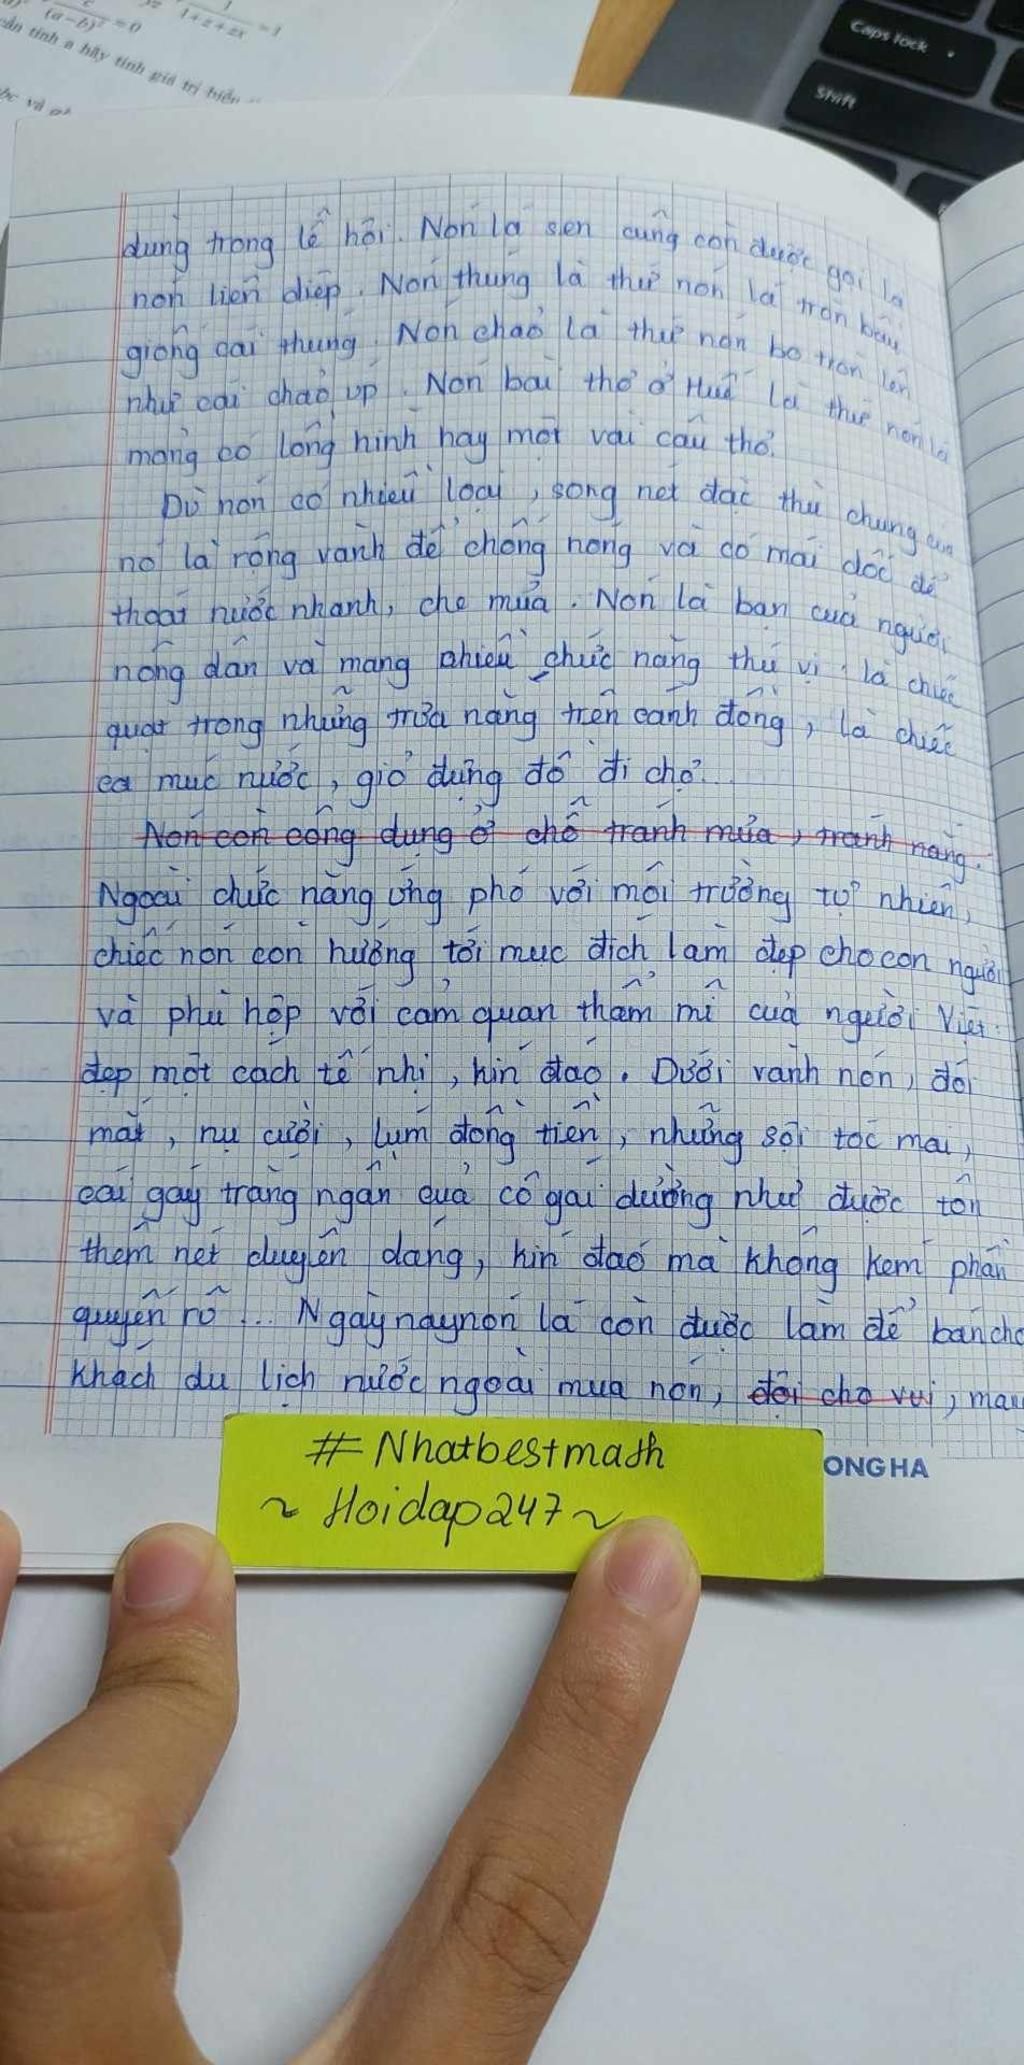 (a-b)² = 0
1+z+zx = 1
tính a hãy tính giá trị biểu
Caps lock
Shift
dùng trong lễ hội. Nón lá sen cũng còn được gọi là
nón liên diệp. Nón thúng là thứ nón lá tròn bầu
giống cái thúng. Nón chảo là thứ nón bo tròn lên
như cái chảo úp. Nón bài thơ ở Huế là thứ nón lá
mỏng có lồng hình hay một vài câu thơ.
Dù nón có nhiều loại, song nét đặc thù chung của
nó là rộng vành để chống nóng và có mái dốc để
thoát nước nhanh, che mưa. Nón là bạn của người
nông dân và mang nhiều chức năng thú vị: là chiếc
quạt trong những trưa nắng trên cánh đồng, là chiếc
ca múc nước, giỏ đựng đồ đi chợ.
Nón còn công dụng ở chỗ tránh mưa, tránh nắng.
Ngoài chức năng ứng phó với môi trường tự nhiên,
chiếc nón còn hướng tới mục đích làm đẹp cho con người
và phù hợp với cảm quan thẩm mĩ của người Việt:
đẹp một cách tế nhị, kín đáo. Dưới vành nón, đôi
mắt, nụ cười, lúm đồng tiền, những sợi tóc mai,
cái gáy trắng ngần của cô gái dường như được tôn
thêm nét duyên dáng, kín đáo mà không kém phần
quyến rũ... Ngày nay nón lá còn được làm để bán cho
khách du lịch nước ngoài mua nón, đội cho vui, mau
ONG HA
#Nhatbestmath
~ Hoidap247 ~